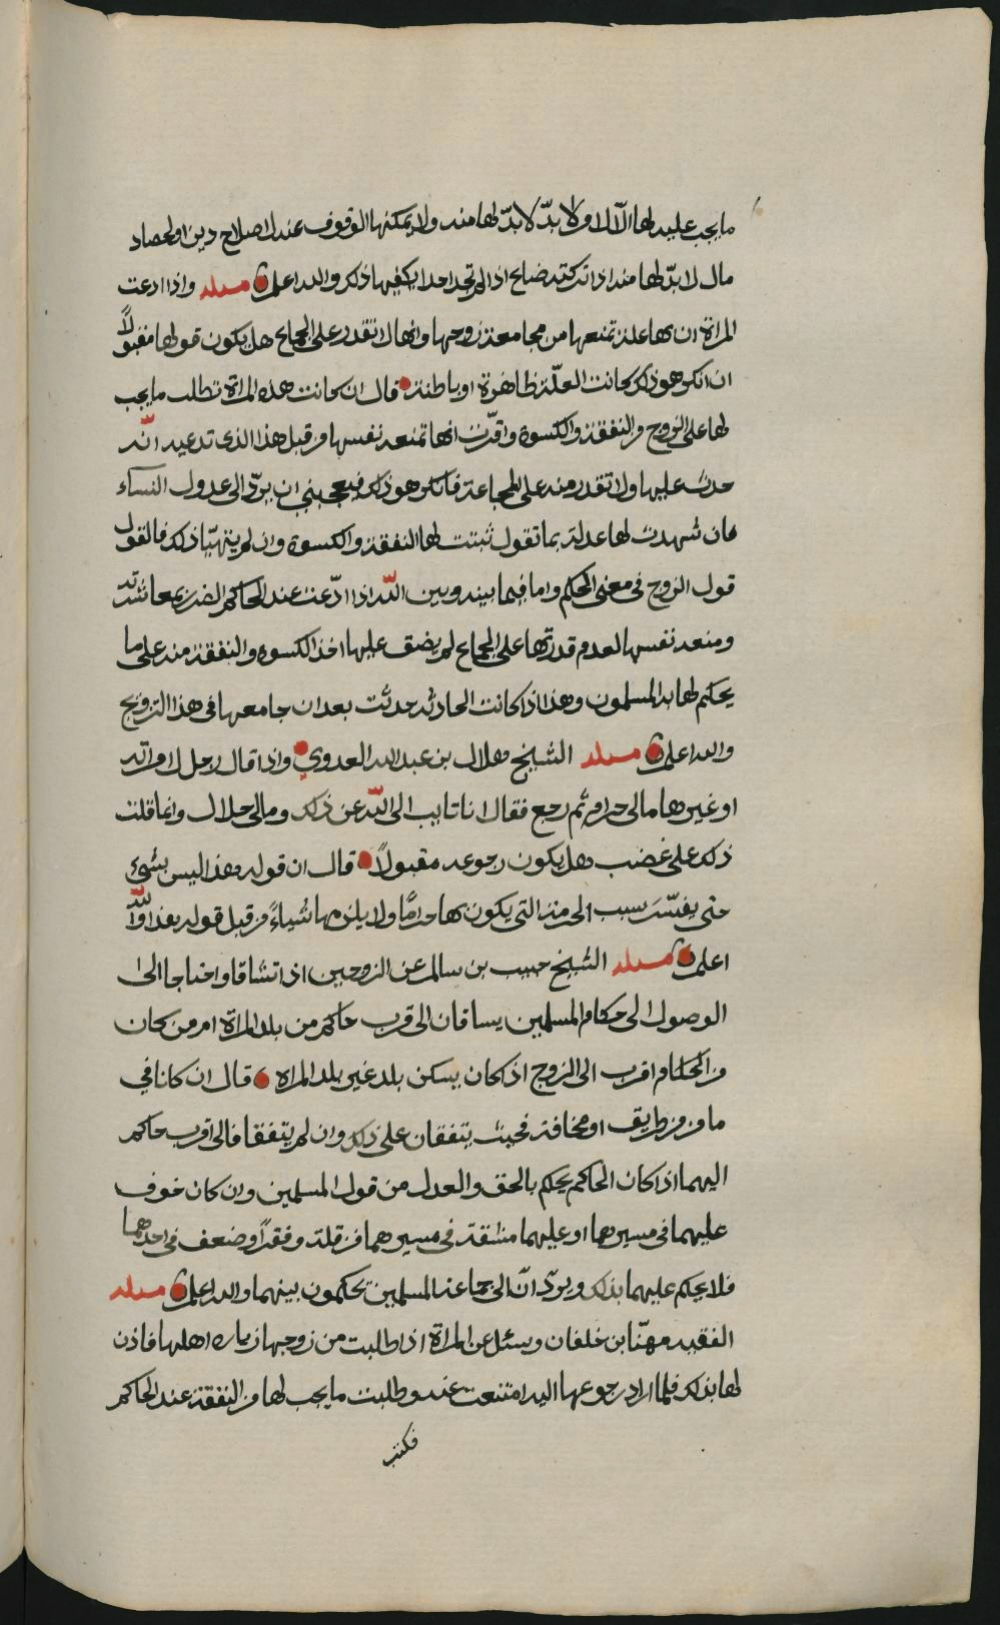 ما يجب عليه لها الا لامر لا بدّ لا بدّ لها منه ولا يمكنها الوقوف عنه لاصلاح دين او لحصاد
مال لا بدّ لها منه اذا تركته ضاع اذا لم تجد احدا يكفيها ذلك والله اعلم مسئله واذا ادعت
المراة ان بها علة تمنعها من مجامعة زوجها وانها لا تقدر على الجماع هل يكون قولها مقبولاً
ان انكر هو ذلك كانت العلّة ظاهرة او باطنة قال ان كانت هذه المراة تطلب ما يجب
لها على الزوج من النفقة والكسوة واقرّت انها تمنعه نفسها من قبل هذا الذى تدعيه انّه
حدث عليها ولا تقدر منه على المجامعة فانكر هو ذلك فيعجبني ان يردّ الى عدول النساء
فان شهدت لها عدلة بما تقول ثبتت لها النفقة والكسوة وان لم يتهيّا ذلك فالقول
قول الزوج في معنى الحكم واما فيما بينه وبين اللّه اذا ادّعت عند الحاكم الضرر بمعاشرته
ومنعه نفسها لعدم قدرتها على الجماع لم يضق عليها اخذ الكسوة والنفقة منه على ما
يحكم لها به المسلمون وهذا اذا كانت الحادثه حدثت بعد ان جامعها في هذا التزويج
والله اعلم مسئله الشيخ هلال بن عبدالله العدوي واذا قال رجل لامراته
او غيرها مالى حرام ثم رجع فقال انا تايب الى اللّه عن ذلك ومالى حلال وانما قلت
ذلك على غضب هل يكون رجوعه مقبولاً قال ان قوله هذا ليس بشيء
حتى يفسّر سبب الحرمة التي يكون بها حرامًا ولا يلزمها شياءً من قبل قوله هذا واللّه
اعلم مسئله الشيخ حبيب بن سالم عن الزوجين اذا تشاقا واحتاجا الى
الوصول الى حكام المسلمين يساقان الى قرب حاكم من بلد المراة ام من كان
من الحكام اقرب الى الزوج اذ كان يسكن بلد غير بلد المراه قال ان كانا في
مامن من طريق او مخافة فحيث يتفقان على ذلك وان لم يتفقا فالى اقرب حاكم
اليهما اذا كان الحاكم يحكم بالحق والعدل من قول المسلمين وان كان خوف
عليهما في مسيرهما او عليهما مشقة في مسيرهما من قلة وفقرًا وضعف في احدهما
فلا يحكم عليهما بذلك ويردّ ان الى جماعة المسلمين يحكمون بينهما والله اعلم مسئله
الفقيه مهنّا بن خلفان وسئل عن المراة اذا طلبت من زوجها زياره اهلها فاذن
لها بذلك فلما اراد رجوعها اليه امتنعت عنه وطلبت ما يجب لها من النفقة عند الحاكم
فكتب